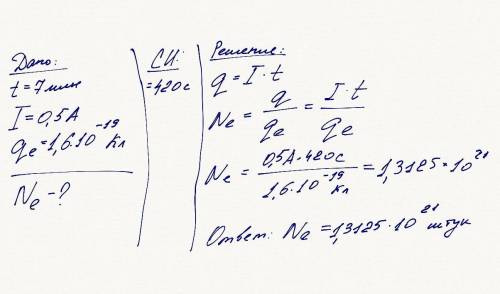 Дано:
t = 7 мин
I = 0,5 А
qe = 1,6·10⁻¹⁹ Кл
Ne - ?
СИ:
= 420 с
Решение:
q = I · t
Ne = q/qe = I · t/qe
Ne = 0,5 А · 420 с/1,6·10⁻¹⁹ Кл = 1,3125 · 10²¹
Ответ: Ne = 1,3125 · 10²¹ штук